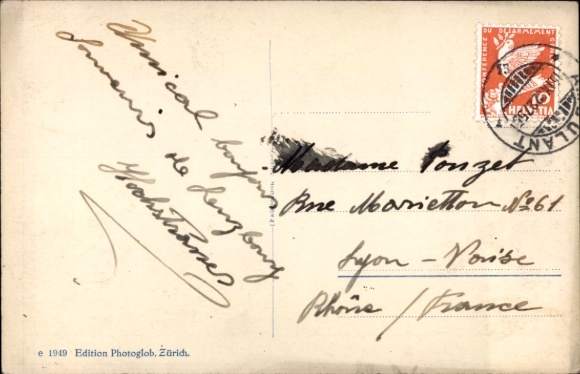 Amical bonjour
Souvenirs de Lenzbourg
Hochstrasser
CONFERENCE DU DESARMEMENT
HELVETIA
AMBULANT
Madame Ponzet
Rue Marietton No 61
Lyon - Vaise
Rhône / France
e 1949 Edition Photoglob, Zürich.